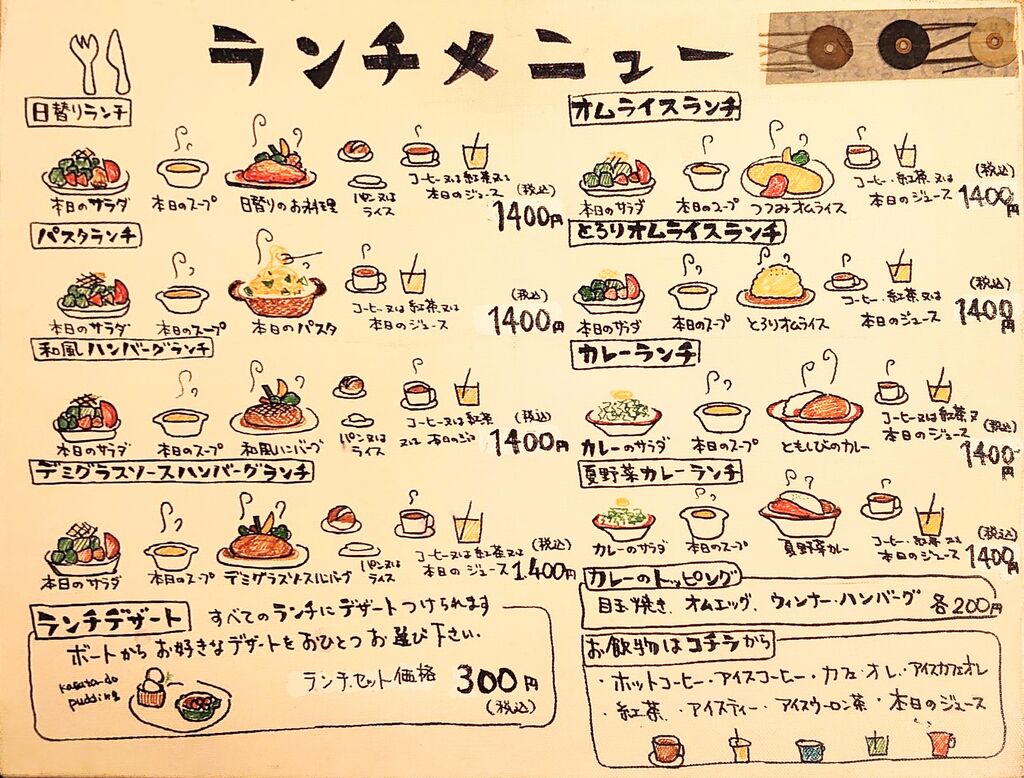 ランチメニュー
日替りランチ
本日のサラダ
本日のスープ
日替りのお料理
パン又は
ライス
コーヒー又は紅茶又は
本日のジュース
(税込)
1400円
パスタランチ
本日のサラダ
本日のスープ
本日のパスタ
コーヒー又は紅茶又は
本日のジュース
(税込)
1400円
和風ハンバーグランチ
本日のサラダ
本日のスープ
和風ハンバーグ
パン又は
ライス
コーヒー又は紅茶
又は 本日のジュ
(税込)
1400円
デミグラスソースハンバーグランチ
本日のサラダ
本日のスープ
デミグラスソースハンバーグ
パン又は
ライス
コーヒー又は紅茶又は
本日のジュース
(税込)
1.400円
ランチデザート
すべてのランチにデザートつけられます
ボートからお好きなデザートをおひとつお選び下さい.
pudding
ランチセット価格
300円
(税込)
オムライスランチ
本日のサラダ
本日のスープ
つつみオムライス
コーヒー・紅茶又は
本日のジュース
(税込)
1400円
とろりオムライスランチ
本日のサラダ
本日のスープ
とろりオムライス
コーヒー・紅茶又は
本日のジュース
(税込)
1400円
カレーランチ
カレーのサラダ
本日のスープ
ともしびのカレー
コーヒー又は紅茶又
本日のジュース
(税込)
1400円
夏野菜カレーランチ
カレーのサラダ
本日のスープ
夏野菜カレー
コーヒー・紅茶又は
本日のジュース
(税込)
1400円
カレーのトッピング
目玉焼き、オムエッグ、ウィンナー・ハンバーグ 各200円
お飲物はコチラから
・ホットコーヒー・アイスコーヒー・カフェ・オレ・アイスカフェオレ
・紅茶 ・アイスティー・アイスウーロン茶・本日のジュース